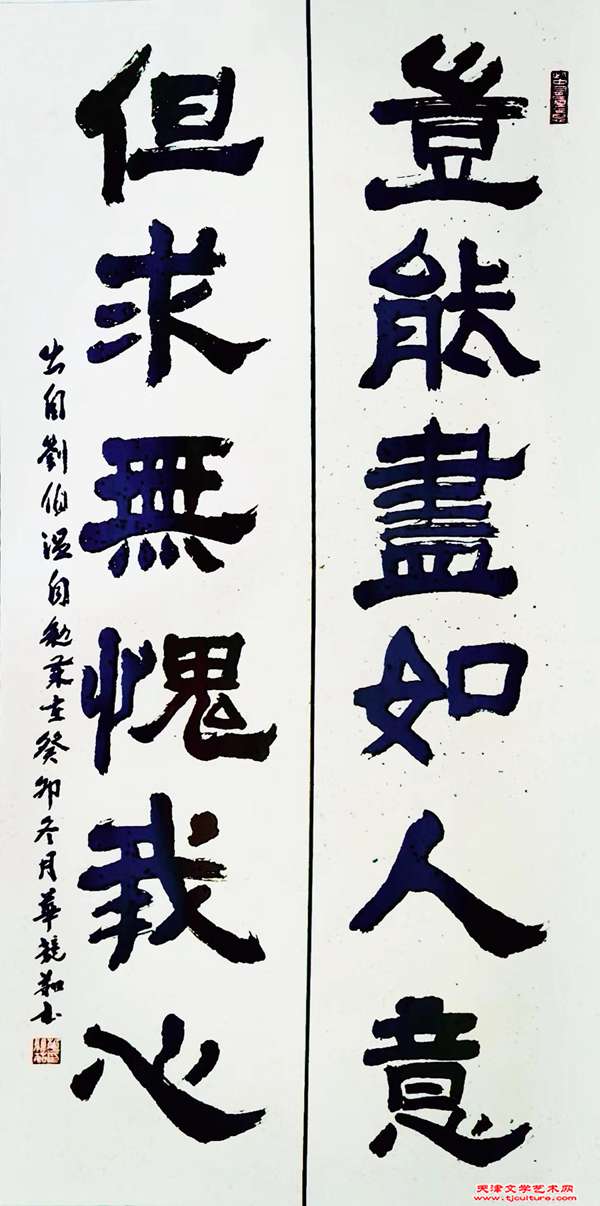 豈能盡如人意
但求無愧我心
出自劉伯溫自勉 歲在癸卯冬月華競
天津文学艺术网
www.tjculture.com